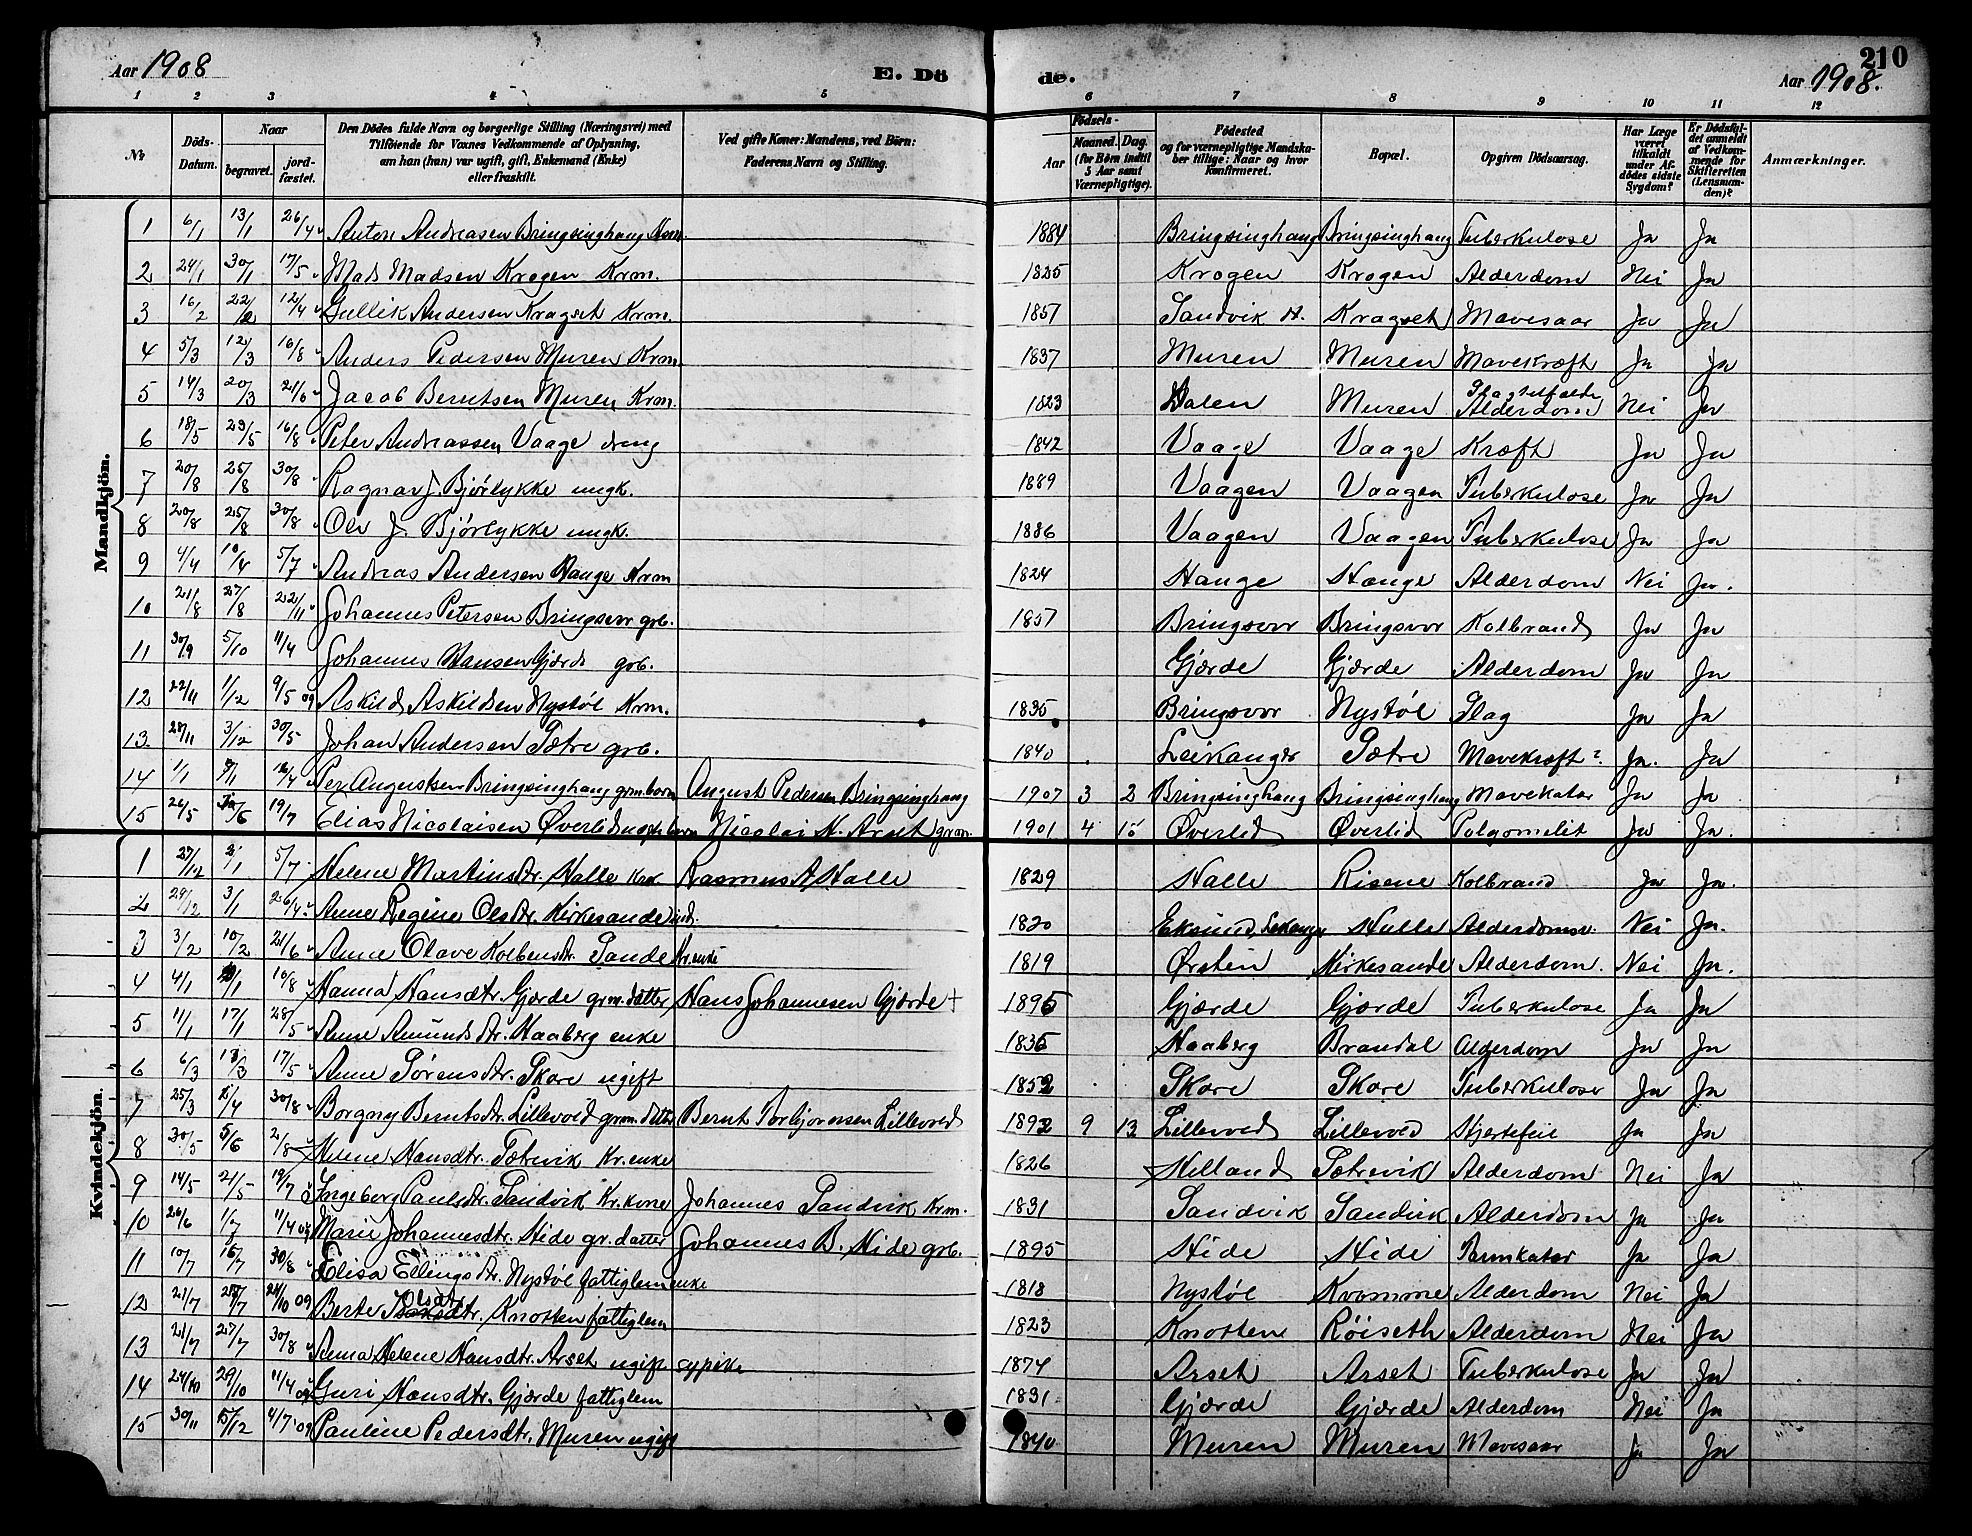 Aar 1908
E. Dö
de.
Aar 1908.
210
1 2 3 4 5 6 7 8 9 10 11 12
No
Döds-Datum.
Naar
begravet.
jord-fæstet.
Den Dödes fulde Navn og borgerlige Stilling (Næringsvei) med
Tilföiende for Voxnes Vedkommende af Oplysning,
om han (hun) var ugift, gift, Enkemand (Enke)
eller fraskilt.
Ved gifte Koner: Mandens, ved Börn:
Faderens Navn og Stilling.
Födsels-
Aar
Maaned. Dag.
(for Börn indtil
5 Aar samt
Værnepligtige).
Födested
og for værnepligtige Mandska-
ber tillige: Naar og hvor
konfirmeret.
Bopæl.
Opgiven Dödsaarsag.
Har Læge
været
tilkaldt
under Af-
dödes sidste
Sygdom?
Er Dödsfal-
det anmeldt
af Vedkom-
mende for
Skifteretten
(Lensman-
den)?
Anmærkninger.
Mandkjön.
1 6/1 13/1 26/4 Anton Andreasen Bringsinghaug Krm. 1884 Bringsinghaug Bringsinghaug Tuberkulose Ja Ja
2 24/1 30/1 17/5 Mads Madsen Krogen Krm. 1825 Krogen Krogen Alderdom Nei Ja
3 16/2 22/2 12/4 Gullik Andersen Kragset Krm. 1857 Sandvik H. Kragset Mavesaar Ja Ja
4 5/3 12/3 16/8 Anders Pedersen Muren Krm. 1837 Muren Muren Mavekræft Ja Ja
5 14/3 20/3 21/6 Jacob Berntsen Muren Krm. 1823 Dalen Muren Alderdom Nei Ja
6 18/5 23/5 16/8 Peter Andreassen Vaage dreng 1842 Vaage Vaage Kræft Ja Ja
7 20/8 25/8 30/8 Ragnar J. Bjørlykke ungk. 1889 Vaagen Vaagen Tuberkulose Ja Ja
8 20/8 25/8 30/8 Ola J. Bjørlykke ungk. 1886 Vaagen Vaagen Tuberkulose Ja Ja
9 4/4 10/4 5/7 Andreas Andersen Hauge Krm 1824 Hauge Hauge Alderdom Nei Ja.
10 21/8 27/8 22/11 Johannes Petersen Bringsvor grb. 1857 Bringsvor Bringsvor Kolbrand Ja Ja
11 30/9 5/10 11/4 Johannes Hansen Gjærde grb. Gjærde Gjærde Alderdom Ja Ja
12 22/11 1/12 9/5 09 Askild Askildsen Nystøl Krm. 1835 Bringsvor Nystøl Slag Ja Ja
13. 28/11 3/12 30/5 Johan Andersen Sætre grb. 1840 Leikanger Sætre Mavekræft? Ja. Ja
14 1/1 8/1 16/4 Per Augustsen Bringsinghaug grm. barn August Pedersen Bringsinghaug 1907 3 2 Bringsinghaug Bringsinghaug Mavekatar Ja Ja
15 26/5 19/7 Elias Nicolaisen Øverlid Nicolai H. Arset grm. 1901 4 15 Øverlid Øverlid Ja Ja.
Kvindekjön.
1 27/12 2/1 5/7 Helene Martinsdtr. Halle Rasmus A. Halle 1829 Halle Risene Kolbrand Ja Ja.
2 29/12 3/1 26/4 Anne Regine Olsdtr. Kirkesande ind. 1820 Eksund, Leikanger Halle Alderdomsv. Nei Ja.
3 3/2 10/2 21/6 Anne Olave Kolbensdtr. Sande Kr. enke 1819 Ørsten Kirkesande Alderdom. Nei Ja.
4 4/1 10/8 Hanna Hansdtr. Gjærde grm. datter Hans Johannesen Gjærde + 1895 Gjærde Gjærde Tuberkulose Ja Ja
5 11/1 17/1 28/5 Anne Amundsdtr. Haaberg enke 1835 Haaberg Brandal Alderdom Ja Ja
6 6/3 13/3 17/5 Anne Sørensdtr. Skore ugift 1852 Skore Skore Tuberkulose Ja Ja
7 25/3 1/4 30/8 Borgny Berntsdtr. Lillevold grm. datter Bernt Torbjørnsen Lillevold 1892 9 13 Lillevold Lillevold Hjertefeil Ja Ja
8 30/5 5/6 2/8 Helene Hansdtr. Sætrevik Kr. enke 1826 Helland Sætrevik Alderdom Nei Ja
9 14/5 21/5 19/7 Ingeborg Paulsdtr. Sandvik Kr. kone Johannes Sandvik Krm. 1831 Sandvik Sandvik Alderdom Ja Ja
10 26/6 1/7 11/4 09 Marie Johannesdtr. Hide gr. datter Johannes B. Hide grb. 1895 Hide Hide Tarmkatar Ja Ja
11 10/7 16/7 30/8 Elisa Ellingsdtr. Nystøl fattiglem enke 1818 Nystøl Kvamme Alderdom Nei Ja
12 21/7 25/7 24/10 09 Berte Olsdtr. Knotten fattiglem 1823 Knotten Røiseth Alderdom Nei Ja
13 21/7 27/7 30/8 Anna Helene Hansdtr. Arset ugift sypike 1874 Arset Arset Tuberkulose Ja Ja
14 24/10 29/10 11/4 09 Guri Hansdtr. Gjærde fattiglem 1831 Gjærde Gjærde Alderdom Nei Ja
15 30/11 5/12 4/7 09 Pauline Pedersdtr. Muren ugift 1840 Muren Muren Mavesaar Ja Ja